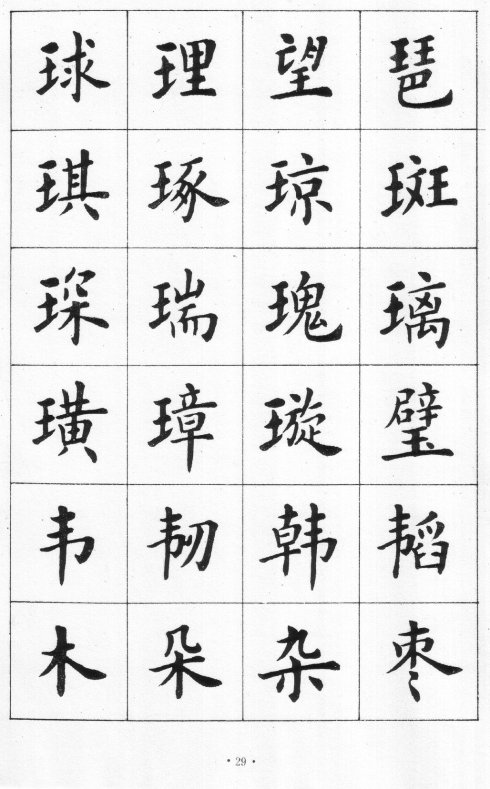 球理望琶
琪琢琼斑
琛瑞瑰璃
璜璋璇璧
韦韧韩韬
木朵杂枣
·29·